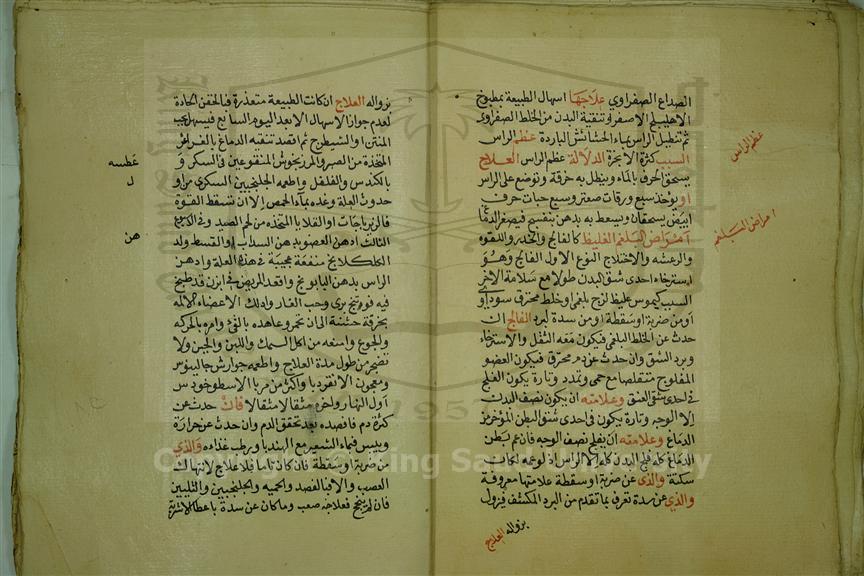 الصداع الصفراوي علاجها اسهال الطبيعة بمطبوخ
الاهليلج الاصفر وتنقية البدن من الخلط الصفراوي
ثم تنطيل الراس بماء الحشائش الباردة عظم الراس
السبب كثرة الابخرة الدلالة عظم الراس العلاج
يسحق الخرف بالماء وينطل به خرقة وتوضع على الراس
او يوخذ سبع ورقات صعتر وسبع حبات حرف
ابيض يسحقان ويسعط به بدهن بنفسج فيصغر الدماغ
امراض البلغم الغليظ كالفالج والخدر واللقوه
والرعشه والاختلاج النوع الاول الفالج وهو
استرخاء احدى شقى البدن طولا مع سلامة الاخر
السبب كيموس غليظ لزج بلغمى او خلط محترق سوداوي
او من ضربة او سقطة او من سدة لبرد الفالج ان
حدث عن الخلط البلغمى فيكون معه الثقل والاسترخاء
وبرد الشق وان حدث عن دم محترق فيكون العضو
المفلوج متقلصا مع حمى وتمدد وتارة يكون الفلج
فى احدى شقى العنق وعلامته ان يكون نصف البدن
الا الوجه وتارة يكون فى احدى شق البطن المؤخر من
الدماغ وعلامته ان يفلج نصف الوجه فان عم بطن
الدماغ كله فلج البدن كله الا الراس
سكتة والذى عن ضربة او سقطة علامتها معروفة
والذي عن سدة تعرف بما تقدم من البرد المكسف فزول
بزواله العلاج
عظم الراس
امراض البلغم
بزواله العلاج ان كانت الطبيعة متعذرة فبالحقن الحادة
لعدم جواز الاسهال الا بعد اليوم السابع فيسهل بحب
المنتن او الشيطرج ثم اقصد تنقيه الدماغ بالغراغر
المتخذة من الصبر والمرزنجوش المنقوعين فى السكر و
بالكندس والفلفل واطعمه الجلنجبين السكري من او
حدوث العلة وغذه بماء الحمص الا ان تسقط القوة
فالزيرباجات او القلايا المتخذة من لحم الصيد وفى الاسبوع
الثالث ادهن العضو بدهن السذاب او القسط ولد
الكلكلانج منفعة عجيبة فى هذه العلة وادهن
الراس بدهن البابونج واقعد المريض فى ابزن قد طبخ
فيه فوتنج برى وحب الغار وادلك الاعضاء الالمه
بخرقة خشنة الى ان تحمر وعاهده بالقئ وامره بالحركه
والجوع وامنعه من اكل السمك واللبن والجبن ولا
تضجر من طول مدة العلاج واطعمه جوارش جالينوس
ومعجون الانقرديا واكثر من مربا الاسطوخودس
اول النهار واخره مثقالا مثقالا فان حدث عن
كثرة دم فافصده بعد تحقق الدم وان حدث عن حرارة
ويبس فماء الشعير مع الهندبا ورطب غذاءه والذي
من ضربة او سقطة فان كان تاما فلا علاج لانتهاك
العصب والا فبالفصد والحميه والجلنجبين والتليين
فان لم ينجح فعلاجه صعب وما كان عن سدة باعطا الاشربة
عطسه
ل
هن